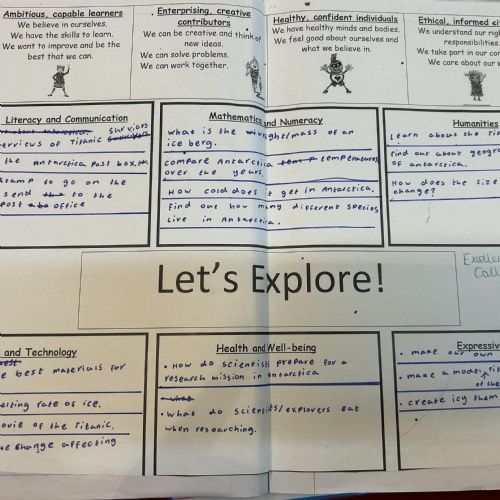 Ambitious, capable learners
We believe in ourselves.
We have the skills to learn.
We want to improve and be the
best that we can.
Enterprising, creative
contributors
We can be creative and think of
new ideas.
We can solve problems.
We can work together.
Healthy, confident individuals
We have healthy minds and bodies.
We feel good about ourselves and
what we believe in.
Ethical, informed ci
We understand our righ
responsibilities.
We take part in our con
We care about our w
Literacy and Communication
surviors
erviews of Titanic
the Antarctica Post box.
stamp to go on the
send to the
post office
Mathematics and Numeracy
what is the weight/mass of an
ice berg.
compare Antarctica temperatures
over the years.
How cold does it get in Antarctica.
find out how many different species
live in Antarctica.
Humanities
Learn about the Tit
find out about geogra
of antarctica.
How does the size
change?
Let's Explore!
Excelle
Call
and Technology
e best materials for
elting rate of ice.
ovie of the Titanic.
te change affecting
Health and Well-being
• How do scientist prepare for a
research mission in antarctica
• What do scientists/explorers eat
when researching.
Expressive
• make our own
• make a model tit
of the
• create icy them